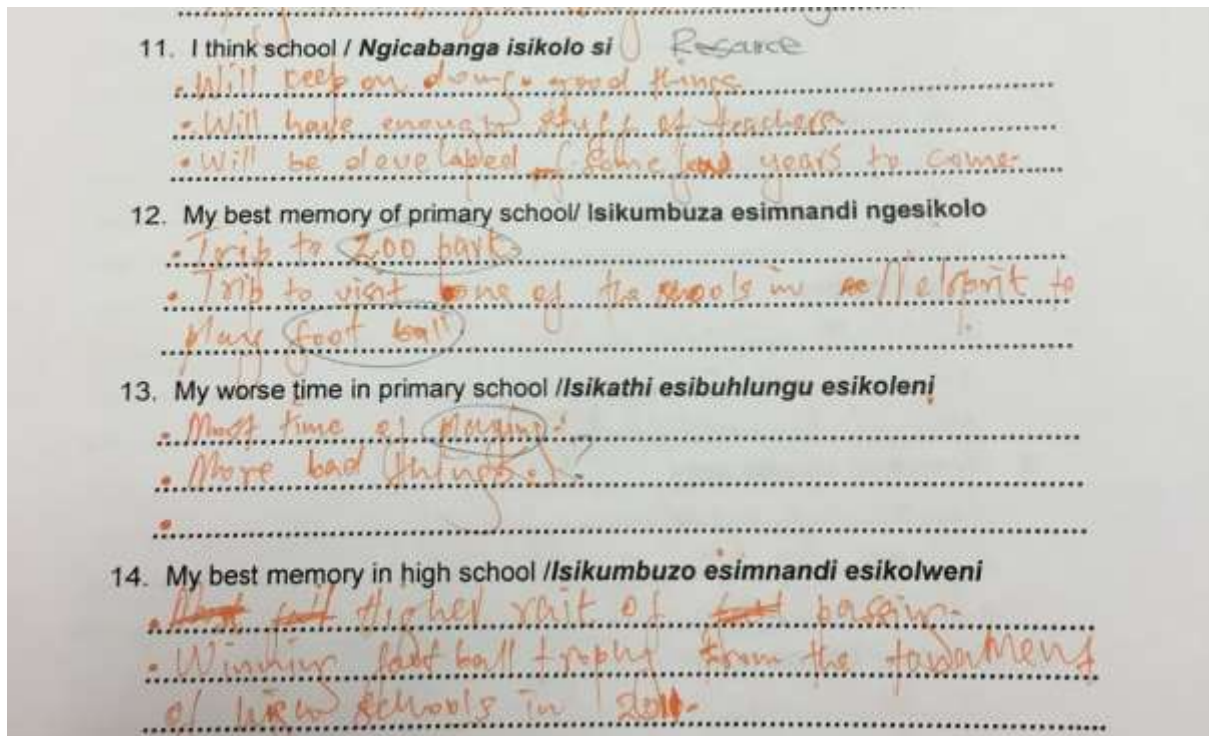 11. I think school / Ngicabanga isikolo si Resource
• Will keep on doing good things
• Will have enough stuff of teachers
• Will be developed of some years to come.
12. My best memory of primary school/ Isikumbuza esimnandi ngesikolo
• Trip to Zoo park
• Trip to visit one of the schools in Nelspruit to
play foot ball
13. My worse time in primary school /Isikathi esibuhlungu esikoleni
• Most time of playing.
• More bad things. ?
•
14. My best memory in high school /Isikumbuzo esimnandi esikolweni
• Higher rait of passing.
• Winning foot ball trophy from the
of high schools in